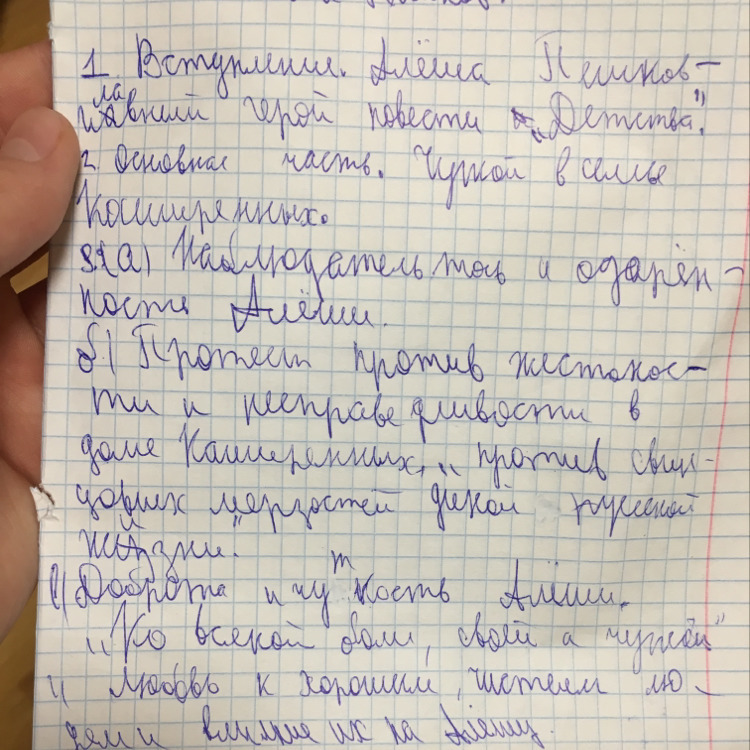 1. Вступление. Алёша Пешков –
главний герой повести "Детства".
2. Основная часть. Чужой в семье
Кошириных.
а) Наблюдательность и одарён-
ности Алёши.
б) Протест против жестокос-
ти и несправедливости в
доме Кашириных, "против свин-
цовых мерзостей дикой русской
жизни".
в) Доброта и чуткость Алёши.
"Ко всякой боли, своей а чужой"
Любовь к хорошим, чистем лю-
дям и влияние их на Алёшу.